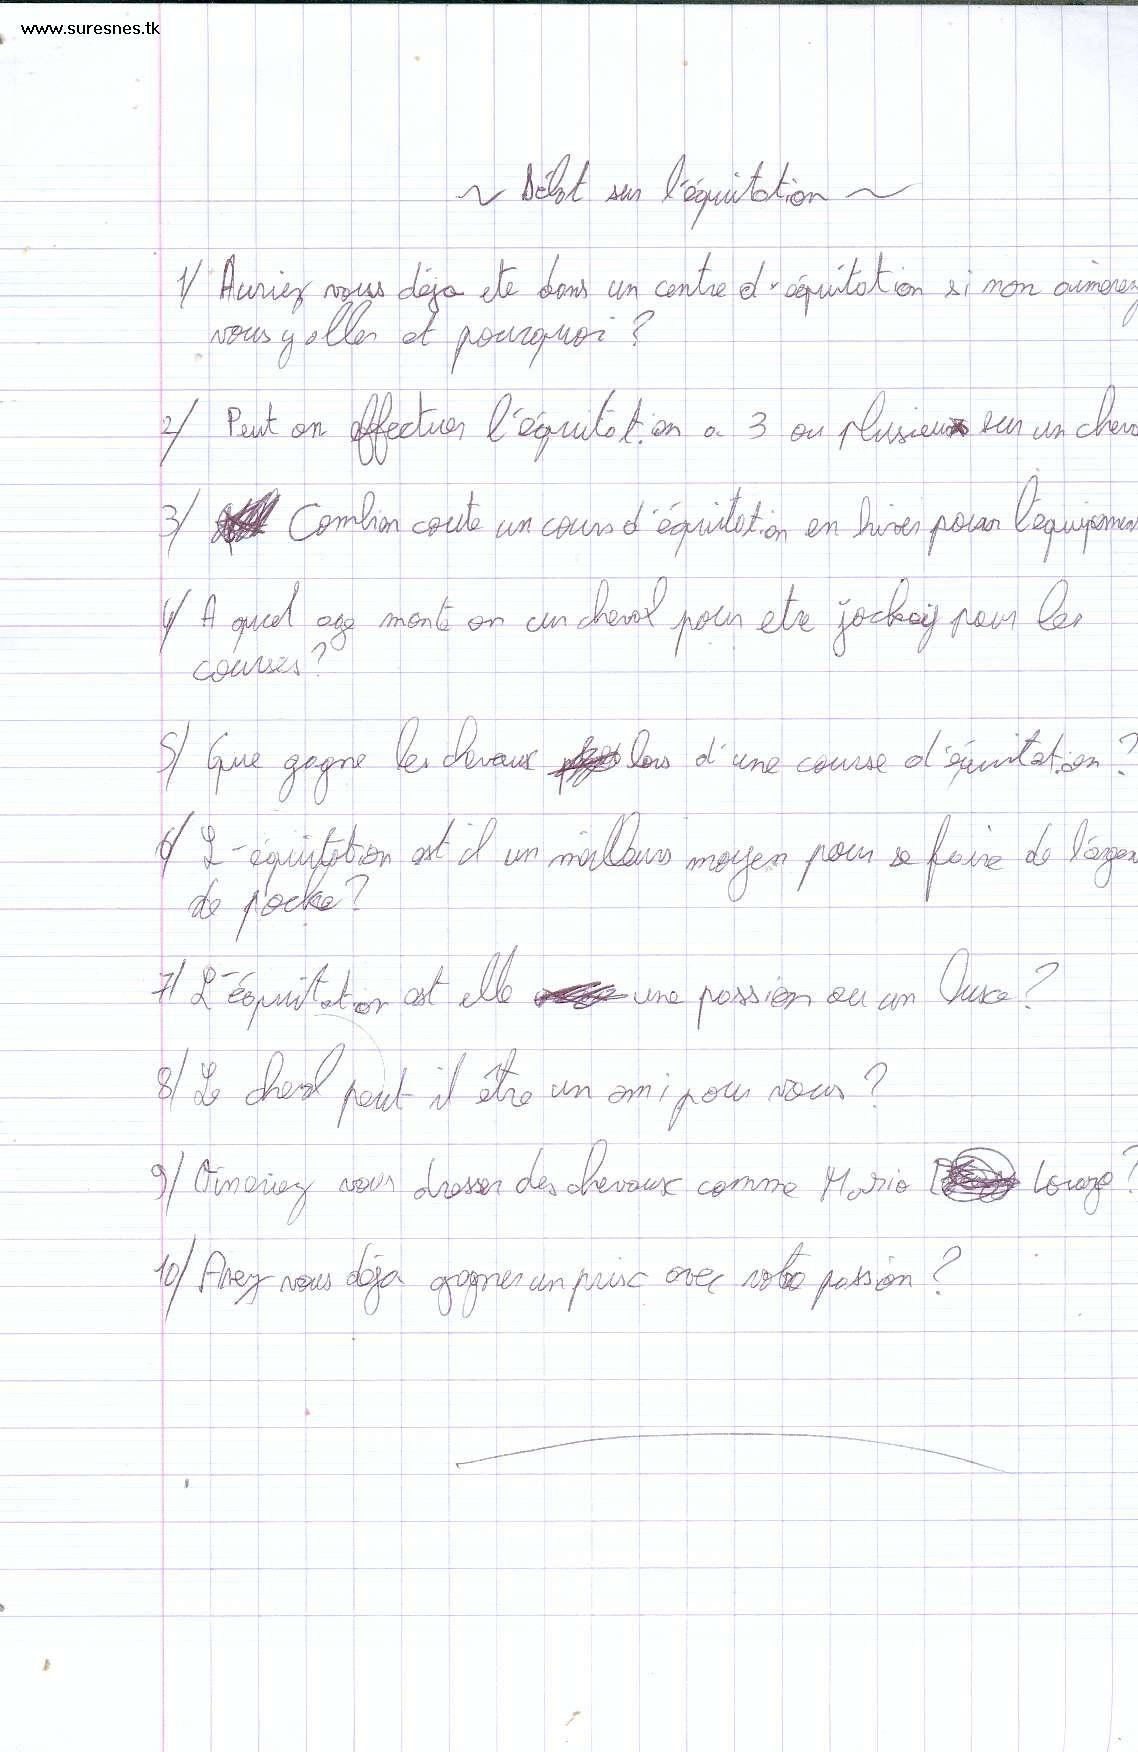 www.suresnes.tk
~ Débat sur l'équitation ~
1/ Auriez vous déja ete dans un centre d'équitation si non aimerez
vous y aller et pourquoi ?
2/ Peut on effectuer l'équitation a 3 ou plusieurs sur un cheva
3/ Combien coute un cours d'équitation en hiver pour l'équipemen
4/ A quel age monte on un cheval pour etre jockey pour les
courses ?
5/ Que gagne les chevaux lors d'une course d'équitation ?
6/ L'équitation est il un meilleurs moyen pour se faire de l'argen
de poche ?
7/ L'équitation est elle une passion ou un luxe ?
8/ Le cheval peut il être un ami pour vous ?
9/ Aimeriez vous dresser des chevaux comme Mario Louraz ?
10/ Avez vous déja gagner un prix avec votre passion ?